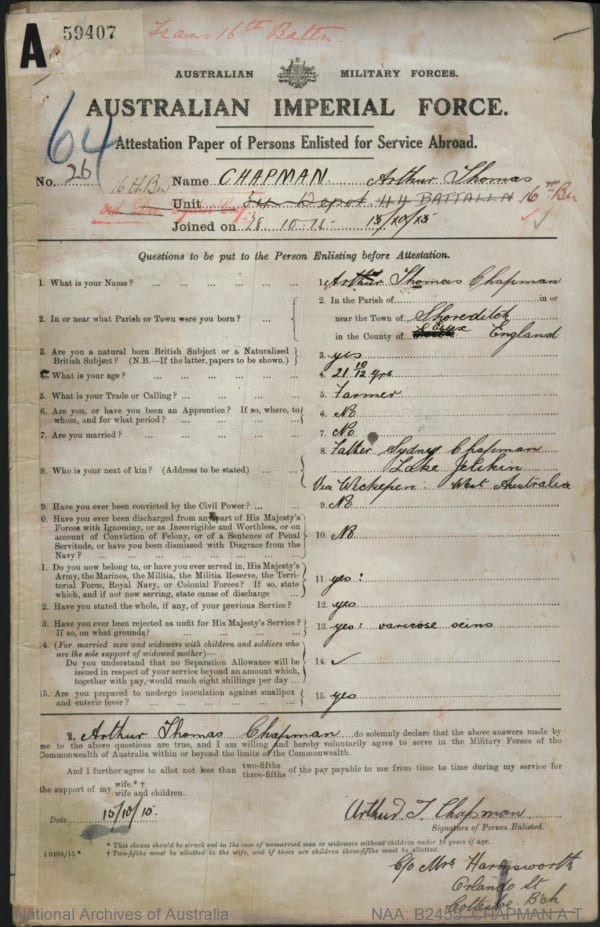 A 59407 Trans 16th Battn
AUSTRALIAN MILITARY FORCES.
AUSTRALIAN IMPERIAL FORCE.
64
Attestation Paper of Persons Enlisted for Service Abroad.
No. 26 16th Bn Name CHAPMAN Arthur Thomas
Unit Depot 44 BATTALION 16th Bn
Joined on 28 10 15 15/10/15
Questions to be put to the Person Enlisting before Attestation.
1. What is your Name? ... 1. Arthur Thomas Chapman
2. In or near what Parish or Town were you born? ... 2. In the Parish of ... in or
near the Town of Shoreditch
in the County of England
3. Are you a natural born British Subject or a Naturalised
British Subject? (N.B.—If the latter, papers to be shown.) 3. yes
What is your age? ... 4. 21 10/12 yrs
5. What is your Trade or Calling? ... 5. Farmer
6. Are you, or have you been an Apprentice? If so, where, to
whom, and for what period? ... 6. No
7. Are you married? ... 7. No
8. Who is your next of kin? (Address to be stated) ... 8. Father Sydney Chapman
Lake
Via Wickepin. West Australia
9. Have you ever been convicted by the Civil Power? ... 9. No
0. Have you ever been discharged from any part of His Majesty's
Forces with Ignominy, or as Incorrigible and Worthless, or on
account of Conviction of Felony, or of a Sentence of Penal
Servitude, or have you been Dismissed with Disgrace from the
Navy? ... 10. No
1. Do you now belong to, or have you ever served in, His Majesty's
Army, the Marines, the Militia, the Militia Reserve, the Terri-
torial Force, Royal Navy, or Colonial Forces? If so, state
which, and if not now serving, state cause of discharge ... 11. yes:
2. Have you stated the whole, if any, of your previous Service? 12. yes
3. Have you ever been rejected as unfit for His Majesty's Service?
If so, on what grounds? ... 13. yes: varicose veins
4. (For married men and widowers with children and soldiers who
are the sole support of widowed mother)—
Do you understand that no Separation Allowance will be
issued in respect of your service beyond an amount which,
together with pay, would reach eight shillings per day ... 14. ✓
15. Are you prepared to undergo inoculation against smallpox
and enteric fever? ... 15. yes
I, Arthur Thomas Chapman do solemnly declare that the above answers made by
me to the above questions are true, and I am willing and hereby voluntarily agree to serve in the Military Forces of the
Commonwealth of Australia within or beyond the limits of the Commonwealth.
And I further agree to allot not less than two-fifths three-fifths of the pay payable to me from time to time during my service for
the support of my wife.*† wife and children.
Date 15/10/15.
Arthur T. Chapman
Signature of Person Enlisted.
* This clause should be struck out in the case of unmarried men or widowers without children under 18 years of age.
† Two-fifths must be allotted to the wife, and if there are children three-fifths must be allotted.
C/o Mrs Harmsworth
Orlando St
Cottesloe Bch
National Archives of Australia NAA: B2455, CHAPMAN A T